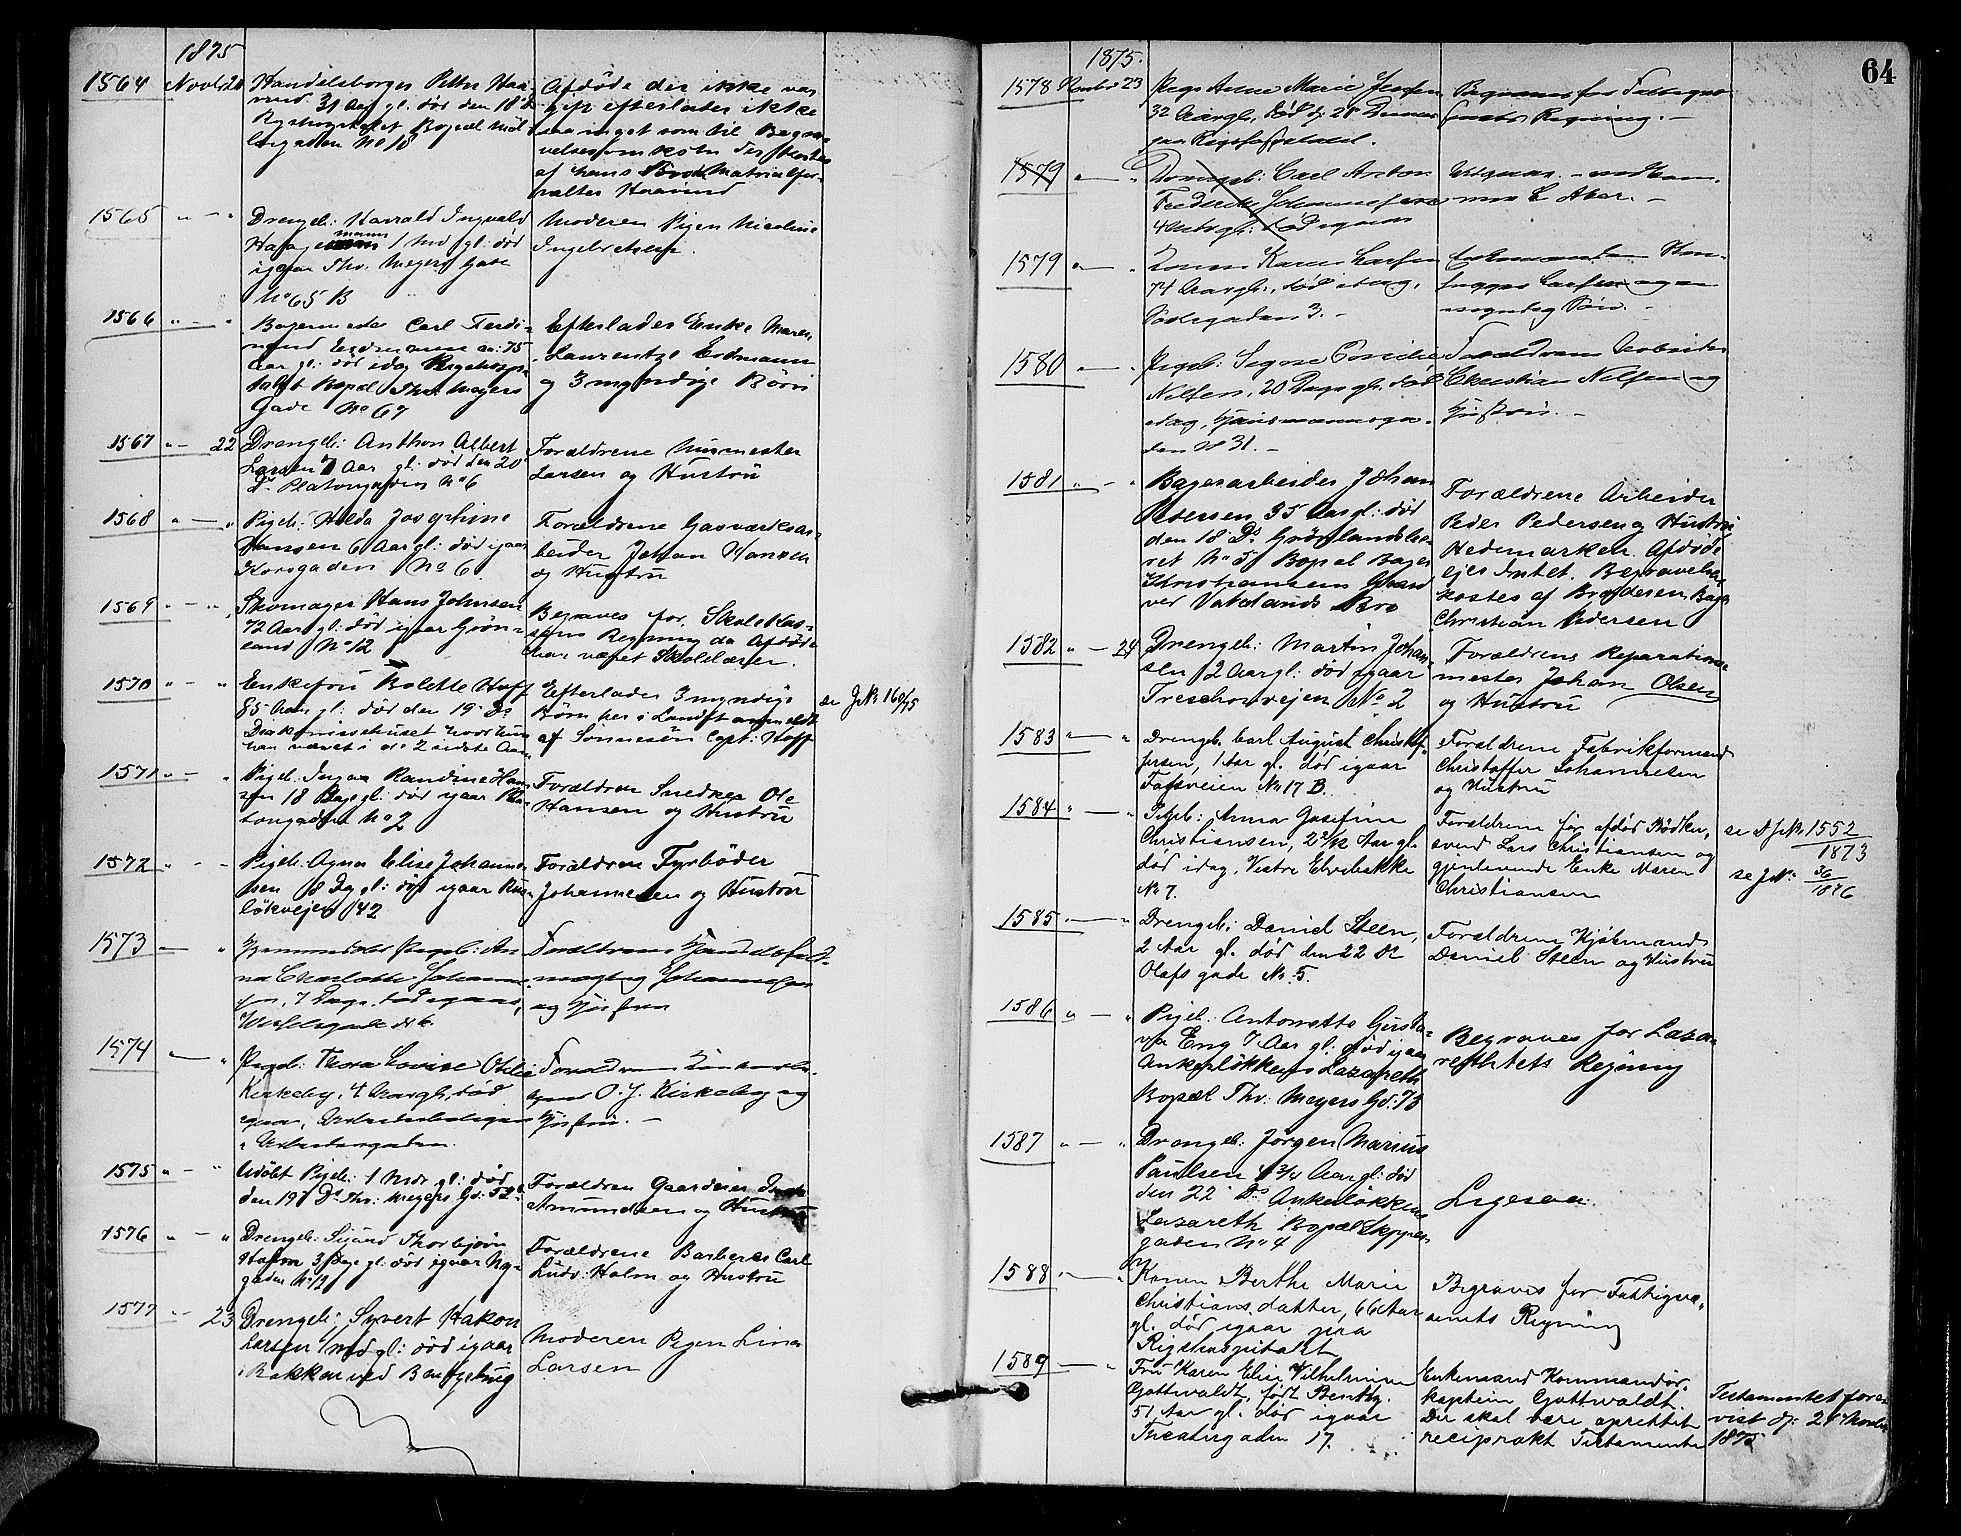 1875
1564 Novbr 20 Handelsborger Petter Haa-
rund 31 Aar gl. død den 18 d
Rigshospitalet Bopæl Møl-
lergaden No 18
Afdøde der ikke var
gift efterlader ikke
saa meget som til Begra-
velsesomkostn. der
af hans Broder Materialfor-
valter Haarund
1565 " — " Drengeb: Harald Ingvald
Haagenmann 1 Md gl: død
igaar Thv. Meyers Gade
No 65 B
Moderen Pigen Nicoline
Ingebretsen.
1566 " — " Bagermester Carl Ferdi-
nand Erdmann 75
Aar gl: død idag Rigshospi-
talet Bopæl Thv. Meyers
Gade No 67
Efterlader Enke Maren
Laurentze Erdmann
og 3 myndige Børn
1567 " — 22 Drengeb: Anthon Albert
Larsen 7 Aar gl: død den 20
Ds Platousgaden No 6
Forældrene Murmester
Larsen og Hustru
1568 " — " Pigeb: Hilda Josephine
Hansen 6 Aar gl: død igaar
Korsgaden No 6
Forældrene Gasværksar-
beider Johan Hansen
og Hustru
1569 " — " Skomager Hans Johnsen
72 Aar gl: død igaar Grøn-
land No 12
Begraves for Skolekas-
sens Regning da Afdøde
har været Skolelærer.
1570 " — " Enkefru Bolette Hoff
85 Aar gl: død den 19 Ds
Diakonissehuset hvor hun
har været i de 2 sidste Aar
Efterlader 3 myndige
Børn her i Landet anmeldt
af Sønnesøn Capt: Hoff
se JN 160/75
1571 " — " Pigeb: Inga Randine Han-
sen 18 Dage gl: død igaar Pla-
tousgaden No 2
Forældrene Snedker Ole
Hansen og Hustru
1572 " — Pigeb. Agnes Elise Johanne-
sen 8 Dg gl: død igaar Rus-
løkveien 42
Forældrene Fyrbøder
Johannesen og Hustru
1573 — " Hjemmedøbt Pigeb: An-
na Charlotte Johannes-
sen, 7 Dage, død igaar,
Wesselsgade No 6.
Forældrene Handelsfuld-
mægtig Johannesen
og Hustru
1574 — " Pigeb: Thora Lovise Otilie
Kirkeby, 4 Aar gl, død
igaar, Arbeiderboligen
i Arbeidergaden.
Forældrene
O. J. Kirkeby og
Hustru. —
1575 " — " Udøbt Pigeb: 1 Md gl: død
den 19 Ds Thv: Meyers Gd:
Forældrene Gaardeier
Amundsen og Hustru
1576 " — " Drengeb: Sigurd Thorbjørn
Holm 3 Dage gl: død igaar Ny-
gaden No 12
Forældrene Barberer Carl
Ludv: Holm og Hustru
1577 — 23 Drengeb: Syvert Hakon
Larsen 1 Md gl: død igaar
Bakken ved Bantzebrug
Moderen Pigen Lina
Larsen
64
1875.
1578 Novbr 23 Pige Anne Marie Jensen
32 Aar gl, død d. 20 Dennes
paa Rigshospitalet.
Begraves for Fattigvæ-
senets Regning. —
1579 " — " Drengeb: Carl Anton
Fredrik Johannessen
4 Uger gl: død igaar
Aker. —
1579 " — " Konen Karen Larsen
74 Aar gl., død idag,
Rødsgaden 3. —
Enkemanden
Larsen og en
myndig Søn. —
1580 " — " Pigeb: Signe Cecilie
Nilsen, 20 Dage gl. død
idag, Hausmannsga-
den No 31. —
Forældrene Arbeider
Christian Nilsen og
Hustru. —
1581 " — " Bagerarbeider Johan
Pedersen 35 Aar gl: død
den 18 Ds Grønlandsle-
ret No 5 Bopæl Bager
Christiansens Gaard
ved Vaterlands Bro
Forældrene Arbeider
Peder Pedersen og Hustru
Hedemarken. Afdøde
eier Intet. Begravelsen
kostes af Broderen Bager
Christian Pedersen
1582 " — 24 Drengeb: Martin Johan-
sen 2 Aar gl: død igaar
Treschowsvejen No 2
Forældrene Reparations-
mester Johan Olsen
og Hustru
1583 " — " Drengeb. Carl August Christof-
fersen, 1 Aar gl. død igaar
Fossveien No 17 B.
Forældrene Fabrikformand
Christoffer Johannesen
og Hustru
1584 " — " Pigeb: Anna Josefine
Christiansen, 2 2/12 Aar gl.
død idag, Vestre Elvebakke
No 7.
Forældrene før afdød Bødker-
svend Lars Christiansen og
gjenlevende Enke Maren
Christiansen
se DJNr. 1552/1873
se JNr. 36/1876
1585 " — " Drengeb: Daniel Steen,
2 Aar gl. død den 22 Ds
Olafs gade No 5.
Forældrene Kjøbmand
Daniel Steen og Hustru
1586 " — " Pigeb: Antonette Gusta-
va Eng 7 Aar gl: død igaar
Ankerløkkens Lazareth
Bopæl Thv: Meyers Gd: 75
Begraves for Laza-
rethets Regning
1587 " — " Drengeb: Jørgen Marius
Paulsen 4 3/4 Aar gl: død
den 22 Ds Ankerløkkens
Lazareth Bopæl Skipper-
gaden No 4
Ligesaa.
1588 " — " Konen Berthe Marie
Christiansdatter, 66 Aar
gl. død igaar paa
Rigshospitalet
Begraves for Fattigvæ-
senets Regning
1589 — " Fru Karen Elise Vilhelmine
Gottwaldt, født Bentz
51 Aar gl. død igaar
Theatergaden 17.
Enkemand Kommandør-
kaptein Gottwaldt.
Der skal være oprettet
reciprokt Testamente
Testamentet fore-
vist d: 24 Novbr
1875